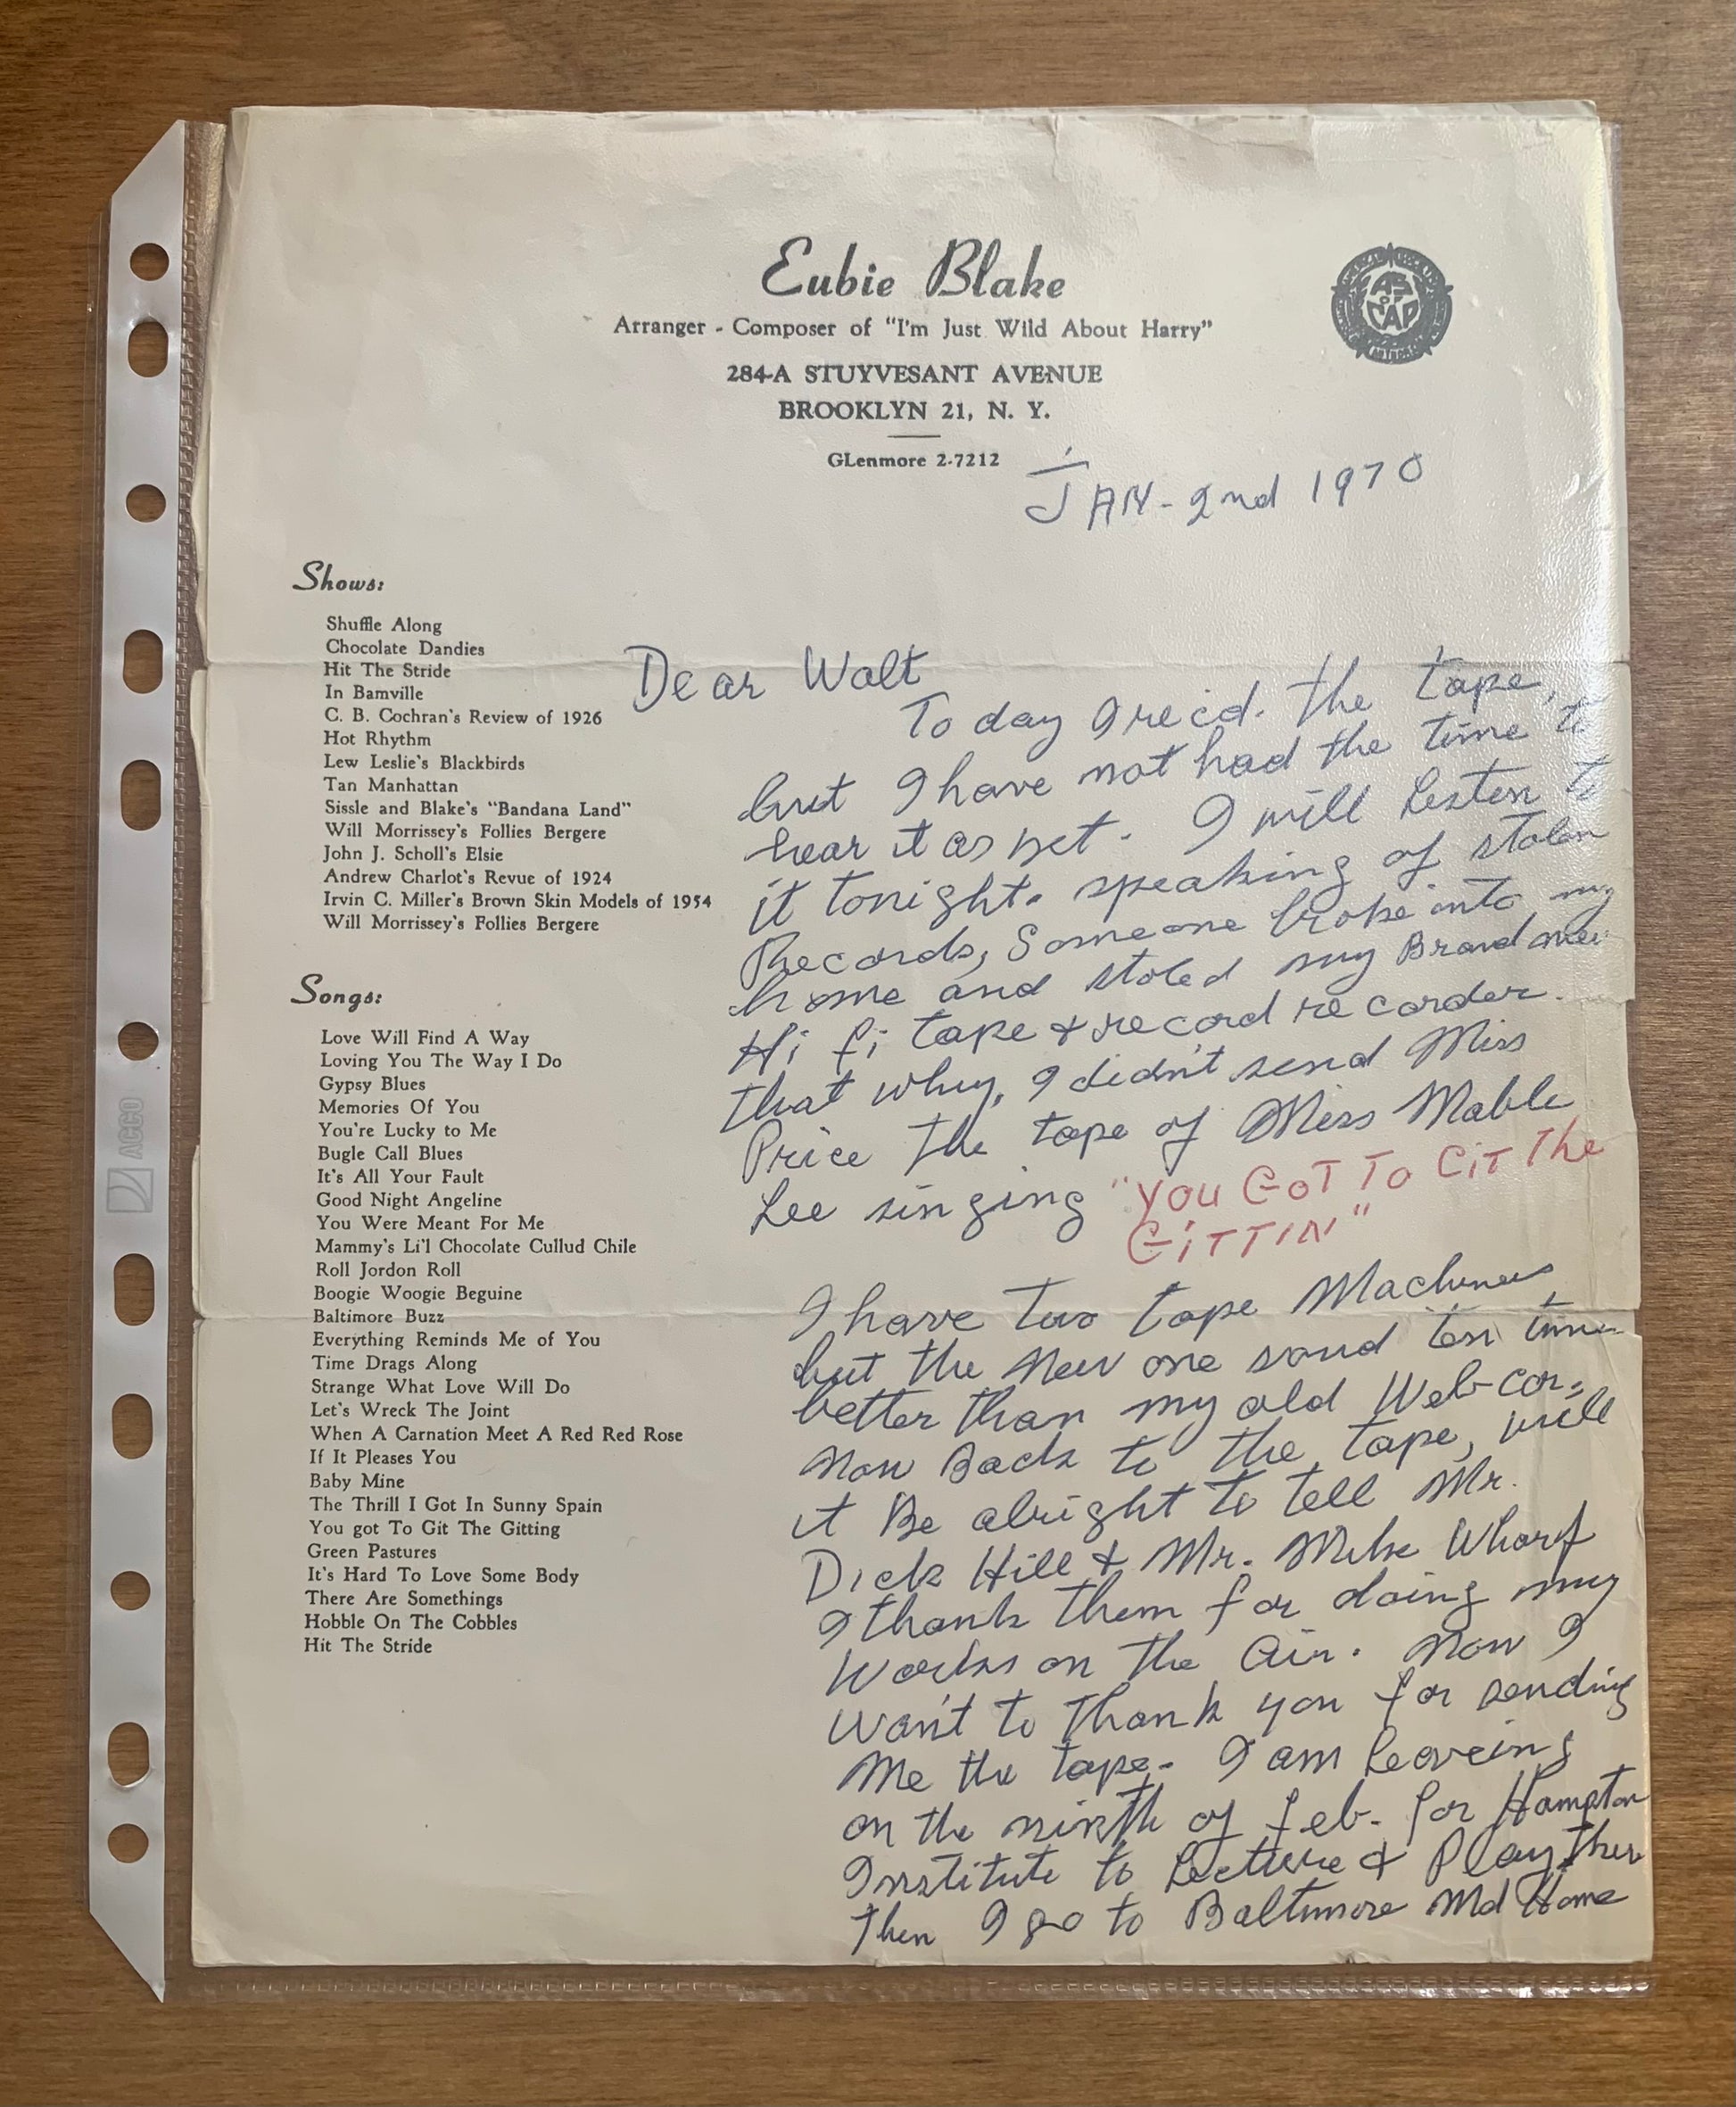 Eubie Blake
Arranger - Composer of "I'm Just Wild About Harry"
284-A STUYVESANT AVENUE
BROOKLYN 21, N. Y.
GLenmore 2-7212
AS
OF
CAP
JAN - 2nd 1970
Shows:
Shuffle Along
Chocolate Dandies
Hit The Stride
In Bamville
C. B. Cochran's Review of 1926
Hot Rhythm
Lew Leslie's Blackbirds
Tan Manhattan
Sissle and Blake's "Bandana Land"
Will Morrissey's Follies Bergere
John J. Scholl's Elsie
Andrew Charlot's Revue of 1924
Irvin C. Miller's Brown Skin Models of 1954
Will Morrissey's Follies Bergere
Songs:
Love Will Find A Way
Loving You The Way I Do
Gypsy Blues
Memories Of You
You're Lucky to Me
Bugle Call Blues
It's All Your Fault
Good Night Angeline
You Were Meant For Me
Mammy's Li'l Chocolate Cullud Chile
Roll Jordon Roll
Boogie Woogie Beguine
Baltimore Buzz
Everything Reminds Me of You
Time Drags Along
Strange What Love Will Do
Let's Wreck The Joint
When A Carnation Meet A Red Red Rose
If It Pleases You
Baby Mine
The Thrill I Got In Sunny Spain
You got To Git The Gitting
Green Pastures
It's Hard To Love Some Body
There Are Somethings
Hobble On The Cobbles
Hit The Stride
Dear Walt
To day I rec'd. the tape,
but I have not had the time to
hear it as yet. I will listen to
it tonight. speaking of stolen
Records, Someone broke into my
home and stoled my Brand new
Hi fi tape & record recorder.
that why, I didn't send Miss
Price the tape of Miss Mable
Lee singing "YOU GOT TO GIT The
GITTIN"
I have two tape Machines,
but the New one soud ten times
better than my old Web-cor.
Now Back to the tape, will
it Be alright to tell Mr.
Dick Hill & Mr. Mike Wharf
I thank them for doing my
Works on the Air. Now I
Want to thank you for sending
Me the tape. I am leaveing
on the ninth of Feb. for Hampton
Institute to Lecture & Play ther
Then I go to Baltimore Md Home
ACCO